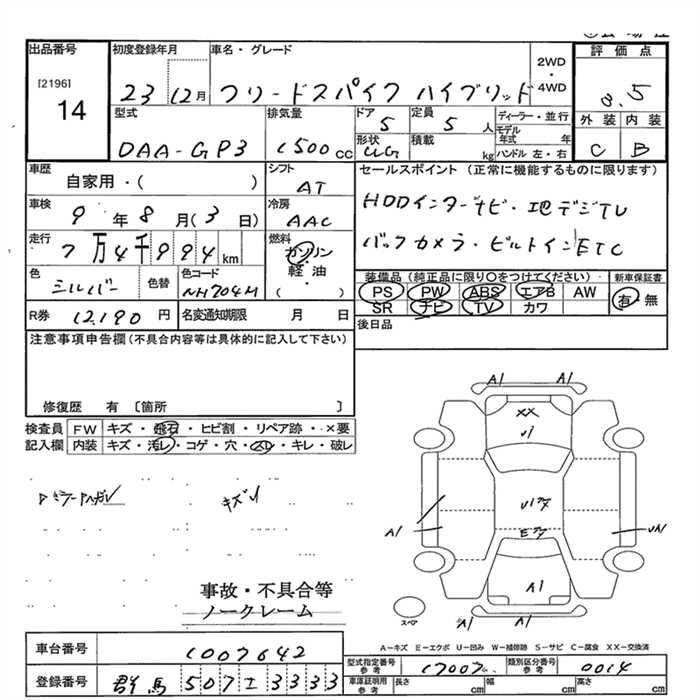 出品番号
[2196]
14
初度登録年月
23 12月
車名・グレード
フリードスパイク ハイブリッド
2WD
・
4WD
評価点
3.5
外装 内装
C B
型式
DAA-GP3
排気量
1500cc
ドア
5
定員
5人
形状
UG
積載
kg
ディーラー・並行
モデル年式 年
ハンドル 左・右
車歴
自家用・( )
シフト
AT
車検
9年8月(3日)
冷房
AAC
走行
7万4千994km
燃料
ガソリン
・
軽・油
( )
色
シルバー
色替
色コード
NH704M
R券
12,190円
名変通知期限 月 日
セールスポイント(正常に機能するものに限ります)
HDDインターナビ・地デジTV
バックカメラ・ビルトインETC
装備品(純正品に限り○をつけてください)
PS PW ABS エアB AW
SR ナビ TV カワ
新車保証書
有・無
後日品
注意事項申告欄(不具合内容等は具体的に記入して下さい)
修復歴 有 〔箇所 〕
検査員
記入欄
FW キズ・飛石・ヒビ割・リペア跡・×要
内装 キズ・汚レ・コゲ・穴・スレ・キレ・破レ
キズ
A1 A1
XX
U1
A1
A1
A1 A1
スペア
事故・不具合等
ノークレーム
A−キズ E−エクボ U−凹み W−補修跡 S−サビ C−腐食 XX−交換済
車台番号
1007642
登録番号
群馬 507 エ 3333
型式指定番号
参考
17007
類別区分番号
参考
0014
車庫証明用
参考
長さ cm
幅 cm
高さ cm